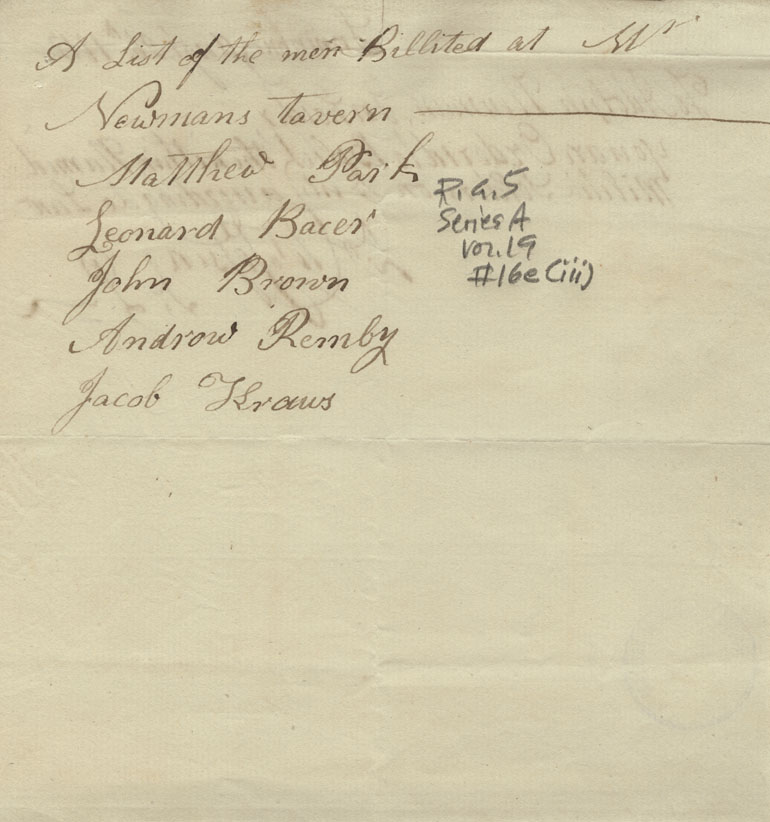 A List of the men Billited at Mr
Newmans tavern
Matthew Park
Leonard Bacer
John Brown
Androw Remby
Jacob Kraws
R.G.5
Series A
Vol.19
#16e(iii)